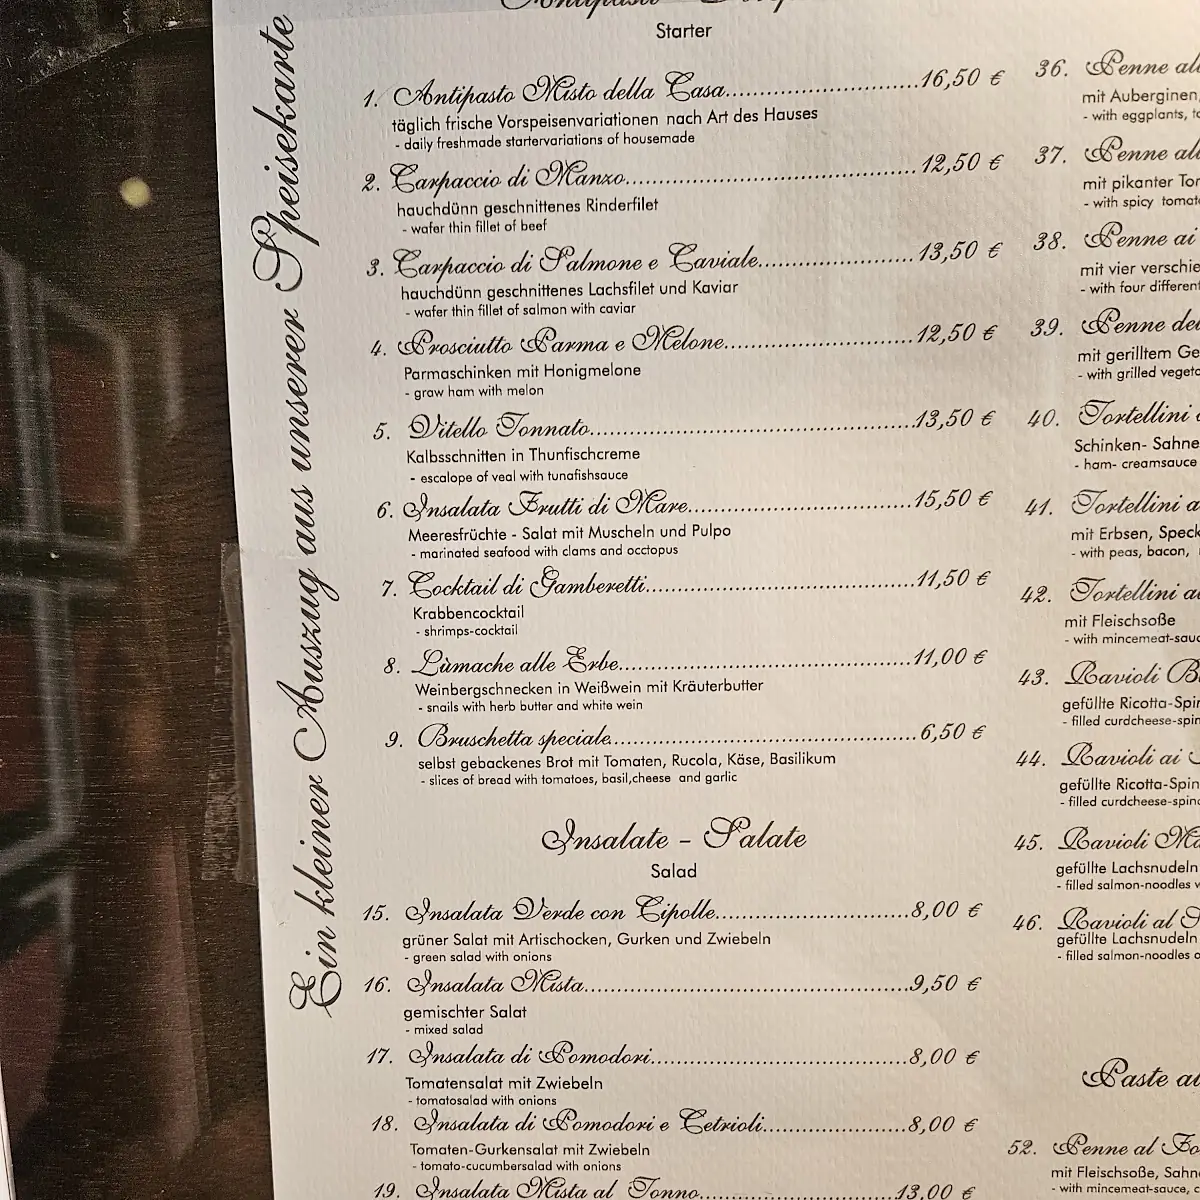 Ein kleiner Auszug aus unserer Speisekarte
Starter
1. Antipasto Misto della Casa..........16,50 €
täglich frische Vorspeisenvariationen nach Art des Hauses
- daily freshmade startervariations of housemade
2. Carpaccio di Manzo..........12,50 €
hauchdünn geschnittenes Rinderfilet
- wafer thin fillet of beef
3. Carpaccio di Salmone e Caviale..........13,50 €
hauchdünn geschnittenes Lachsfilet und Kaviar
- wafer thin fillet of salmon with caviar
4. Prosciutto Parma e Melone..........12,50 €
Parmaschinken mit Honigmelone
- graw ham with melon
5. Vitello Tonnato..........13,50 €
Kalbsschnitten in Thunfischcreme
- escalope of veal with tunafishsauce
6. Insalata Frutti di Mare..........15,50 €
Meeresfrüchte - Salat mit Muscheln und Pulpo
- marinated seafood with clams and occtopus
7. Cocktail di Gamberetti..........11,50 €
Krabbencocktail
- shrimps-cocktail
8. Lùmache alle Erbe..........11,00 €
Weinbergschnecken in Weißwein mit Kräuterbutter
- snails with herb butter and white wein
9. Bruschetta speciale..........6,50 €
selbst gebackenes Brot mit Tomaten, Rucola, Käse, Basilikum
- slices of bread with tomatoes, basil,cheese and garlic
Insalate - Salate
Salad
15. Insalata Verde con Cipolle..........8,00 €
grüner Salat mit Artischocken, Gurken und Zwiebeln
- green salad with onions
16. Insalata Mista..........9,50 €
gemischter Salat
- mixed salad
17. Insalata di Pomodori..........8,00 €
Tomatensalat mit Zwiebeln
- tomatosalad with onions
18. Insalata di Pomodori e Cetrioli..........8,00 €
Tomaten-Gurkensalat mit Zwiebeln
- tomato-cucumbersalad with onions
19. Insalata Mista al Tonno..........13,00 €
36. Penne
mit Auberginen,
- with eggplants,
37. Penne
mit pikanter
- with spicy
38. Penne ai
mit vier
- with four different
39. Penne
mit gerilltem
- with grilled
40. Tortellini
Schinken- Sahne
- ham- creamsauce
41. Tortellini
mit Erbsen, Speck
- with peas, bacon,
42. Tortellini
mit Fleischsoße
- with
43. Ravioli
gefüllte
- filled
44. Ravioli ai
gefüllte
- filled
45. Ravioli
gefüllte Lachsnudeln
- filled salmon-noodles
46. Ravioli al
gefüllte Lachsnudeln
- filled salmon-noodles
Paste
52. Penne al
mit Fleischsoße,
- with mincemeat-sauce,